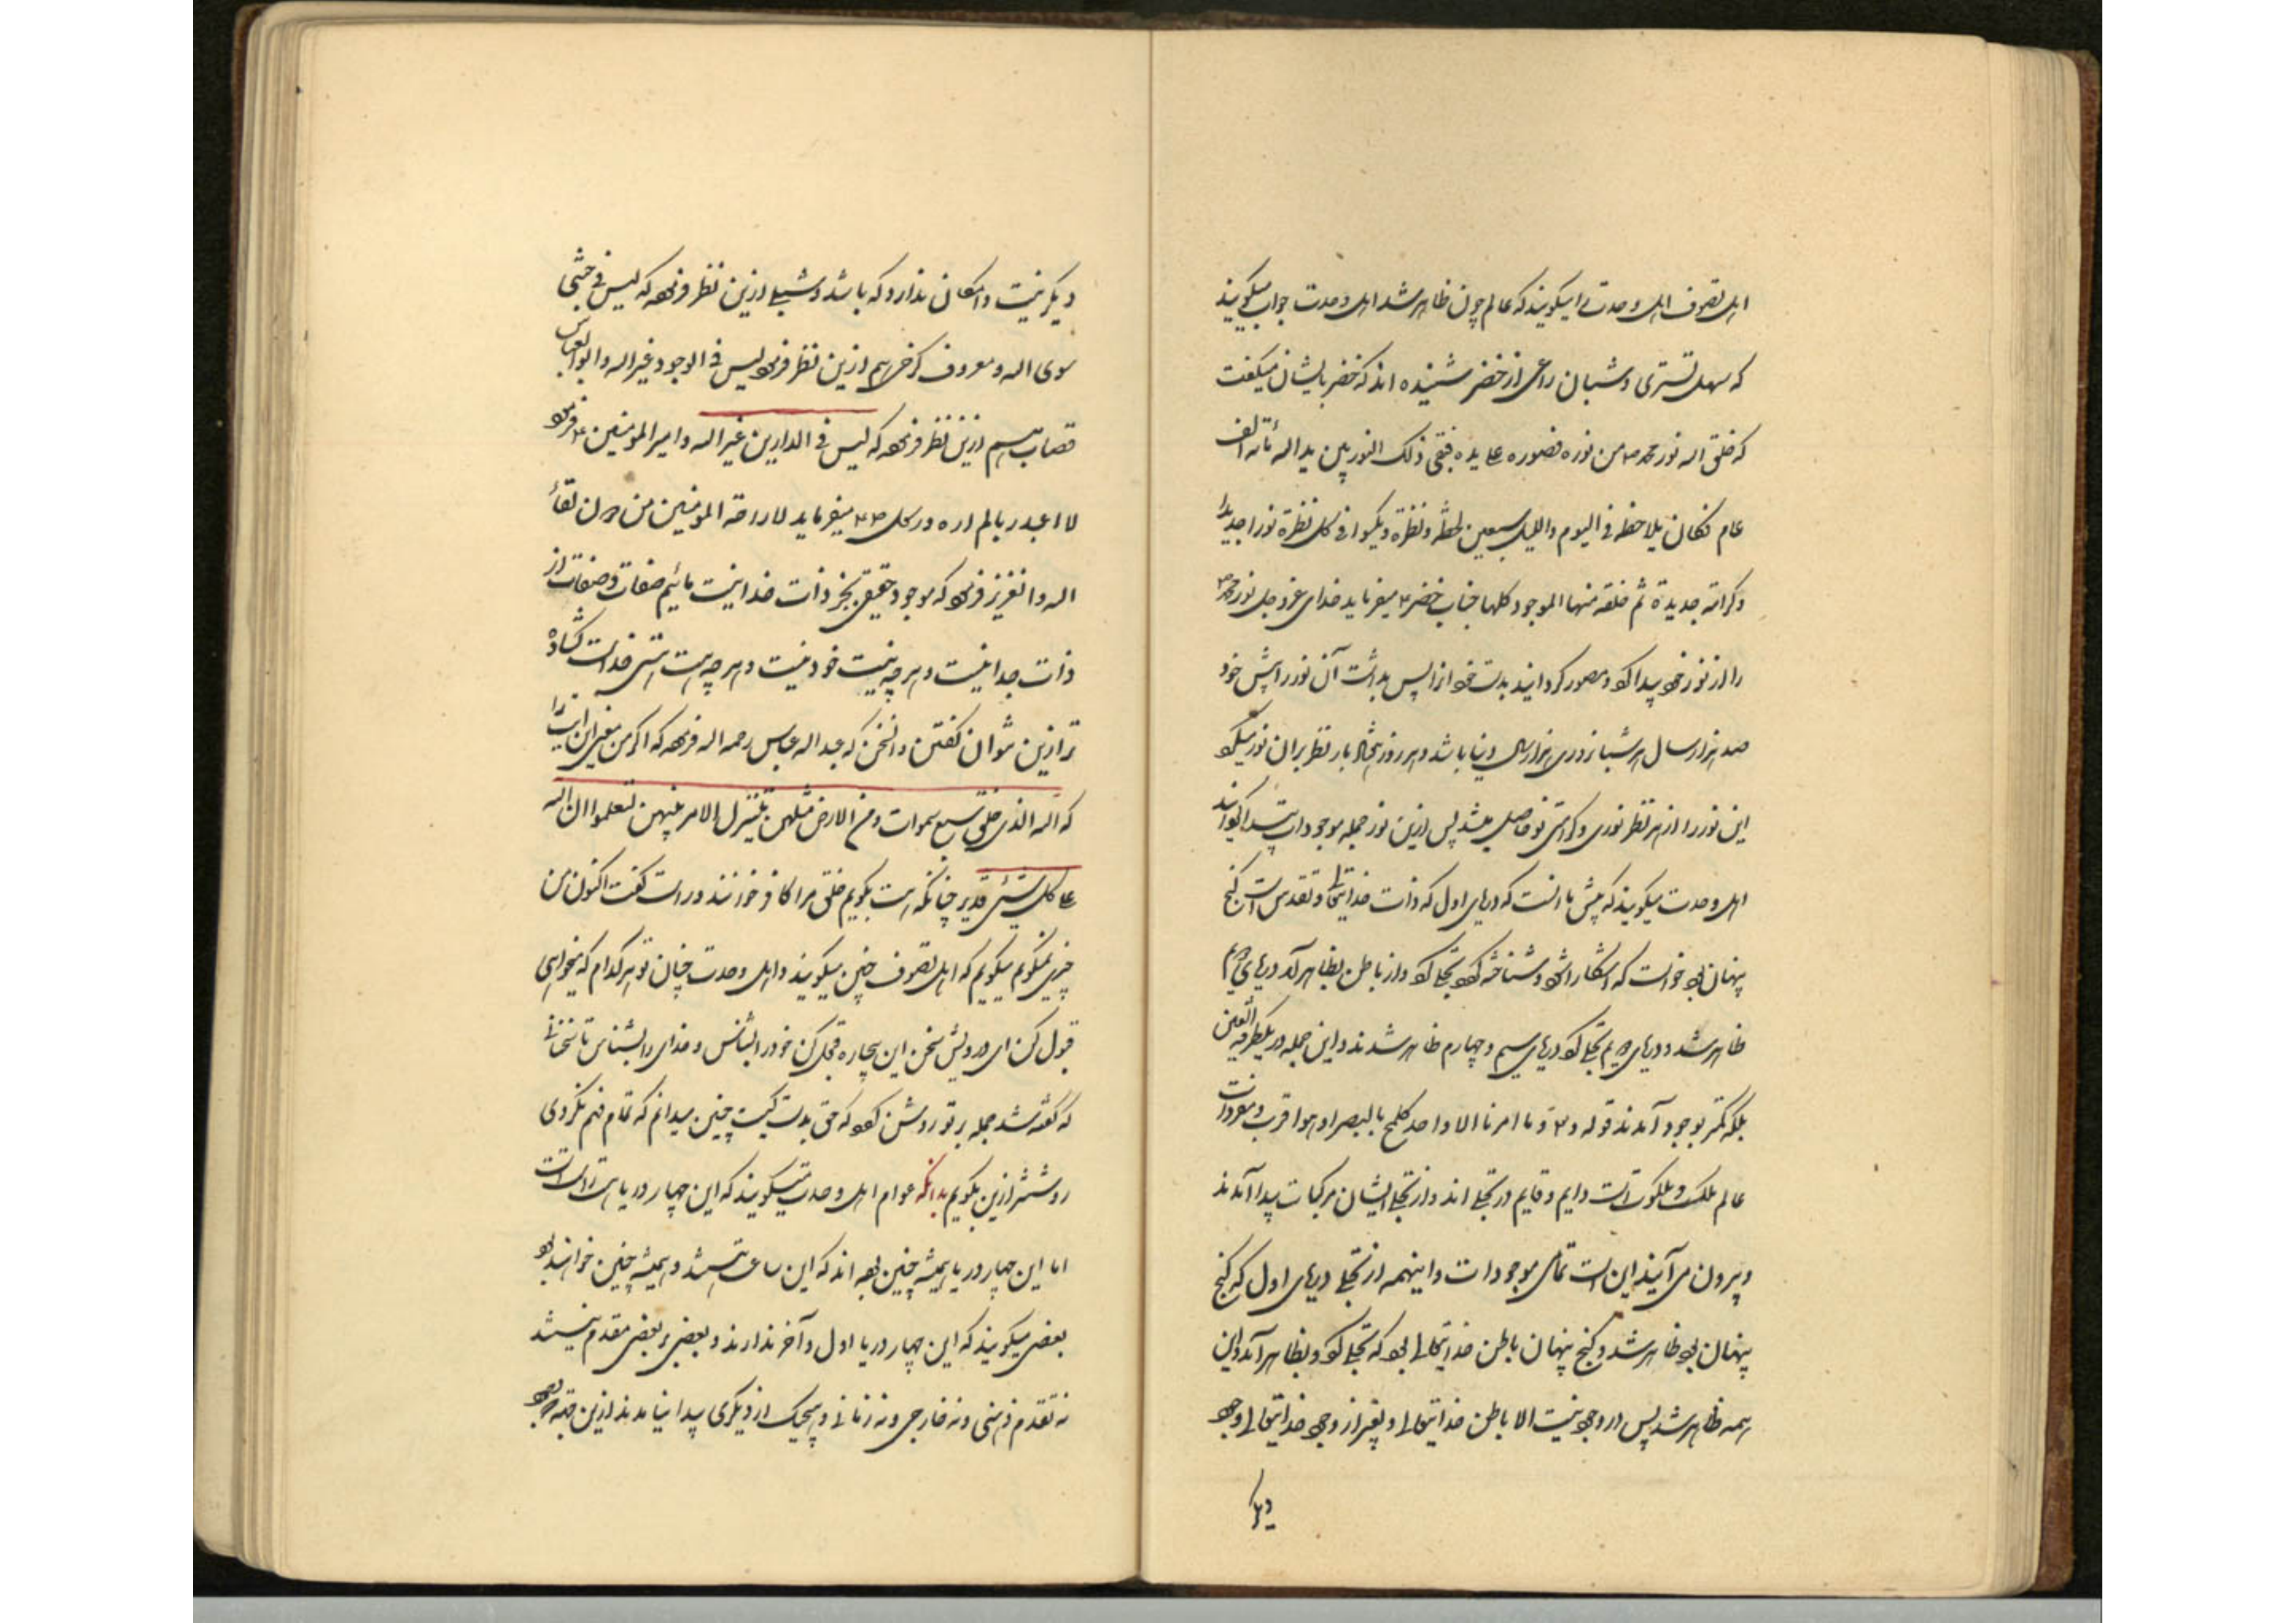 اهل تصوف اهل وحدت را میگویند که عالم چون ظاهر شد اهل وحدت جواب میگویند
که سهل تستری و شبان راعی از خضر شنیده اند که خضر بایشان میگفت
که خلق اله نور محمد ص من نوره فصوره علی یده فبقی ذلک النور بین ید اله مأئة الف
عام فکان یلاحظه فی الیوم واللیل سبعین لحظة و نظرة و یکسوا فی کل نظرة نورا جدیدا
و کرامة جدیدة ثم خلقه منها الموجود کلها جناب خضر ع میفرماید خدای عزوجل نور محمد ص
را از نور خود پیدا کرد و مصور گردانید بدست خود از پس بداشت آن نور را پیش خود
صد هزار سال هر شبانروزی هزار سال دنیا باشد و هر روز بار نظر بران نور میکرد
این نور را از هر نظر نوری و کرامتی نو حاصل میشد پس ازین نور جمله موجودات پیدا
اهل وحدت میگویند که پیش ما آنست که دریای اول که ذات خدایتعالی و تقدس است گنج
پنهان بود خواست که آشکارا شود و شناخته شود تجلی کرد و از باطن بظاهر آمد دریای دویم
ظاهر شد و دریای دویم تجلی کرد دریای سیم و چهارم ظاهر شدند و این جمله در یکطرفه العین
بلکه کمتر بوجود آمدند قوله و ما امرنا الا واحد کلمح بالبصر او هو اقرب و مفردات
عالم ملک و ملکوتست دایم و قایم در تجلی اند و از تجلی ایشان مرکبات پیدا آمدند
و بیرون می آیند این است تمامی موجودات و اینهمه از تجلی دریای اول که گنج
پنهان بود ظاهر شد و گنج پنهان باطن خدایتعالی بود که تجلی کرد و بظاهر آمد و این
همه ظاهر شد پس از وجود نیست الا باطن خدایتعالی و بغیر از وجود خدایتعالی وجود
دیگر
دیگر نیست و امکان ندارد که باشد و شبلی ازین نظر فرموده که لیس فی جبتی
سوی اله و معروف کرخی هم ازین نظر فرمود لیس فی الوجود غیر اله و ابوالعباس
قصاب هم ازین نظر فرموده که لیس فی الدارین غیر اله و امیر المومنین ع فرمود
لا اعبد ربا لم اره و رسول ص میفرماید لا راحة المومنین من دون لقاء
اله و آن عزیز فرمود که موجود حقیقی بجز ذات خدا نیست مائیم صفات و صفات از
ذات جدا نیست و هر چه نیست خود نیست و هر چه هست هستی خداست گشاده
تر ازین نتوان گفتن و آنچنان که عبد اله عباس رحمه اله فرموده که اگر من معنی این آیت را
که اله الذی خلق سبع سموات و من الارض مثلهن یتنزل الامر بینهن لتعلموا ان اله
علی کل شیئ قدیر چنانکه هست بگویم خلق مرا کافر خوانند و راست گفت اکنون من
چیزی نمیگویم میگویم که اهل تصوف چنین میگویند و اهل وحدت چنان تو هر کدام که میخواهی
قبول کن ای درویش سخن این بیچاره قبول کن خود را بشناس و خدای را بشناس تا سخنانی
که گفته شد جمله بر تو روشن شود که حق بدست کیست چنین میدانم که تمام فهم نکردی
روشنتر ازین بگویم بدانکه عوام اهل وحدت میگویند که این چهار دریا
اما این چهار دریا همیشه چنین بوده اند که این ساعت هستند و همیشه چنین خواهند بود
بعضی میگویند که این چهار دریا اول و آخر ندارند و بعضی بر بعضی مقدم نیستند
نه تقدم ذهنی و نه خارجی و نه زمانی و هیچیک از دیگری پیدا نیامدند ازین